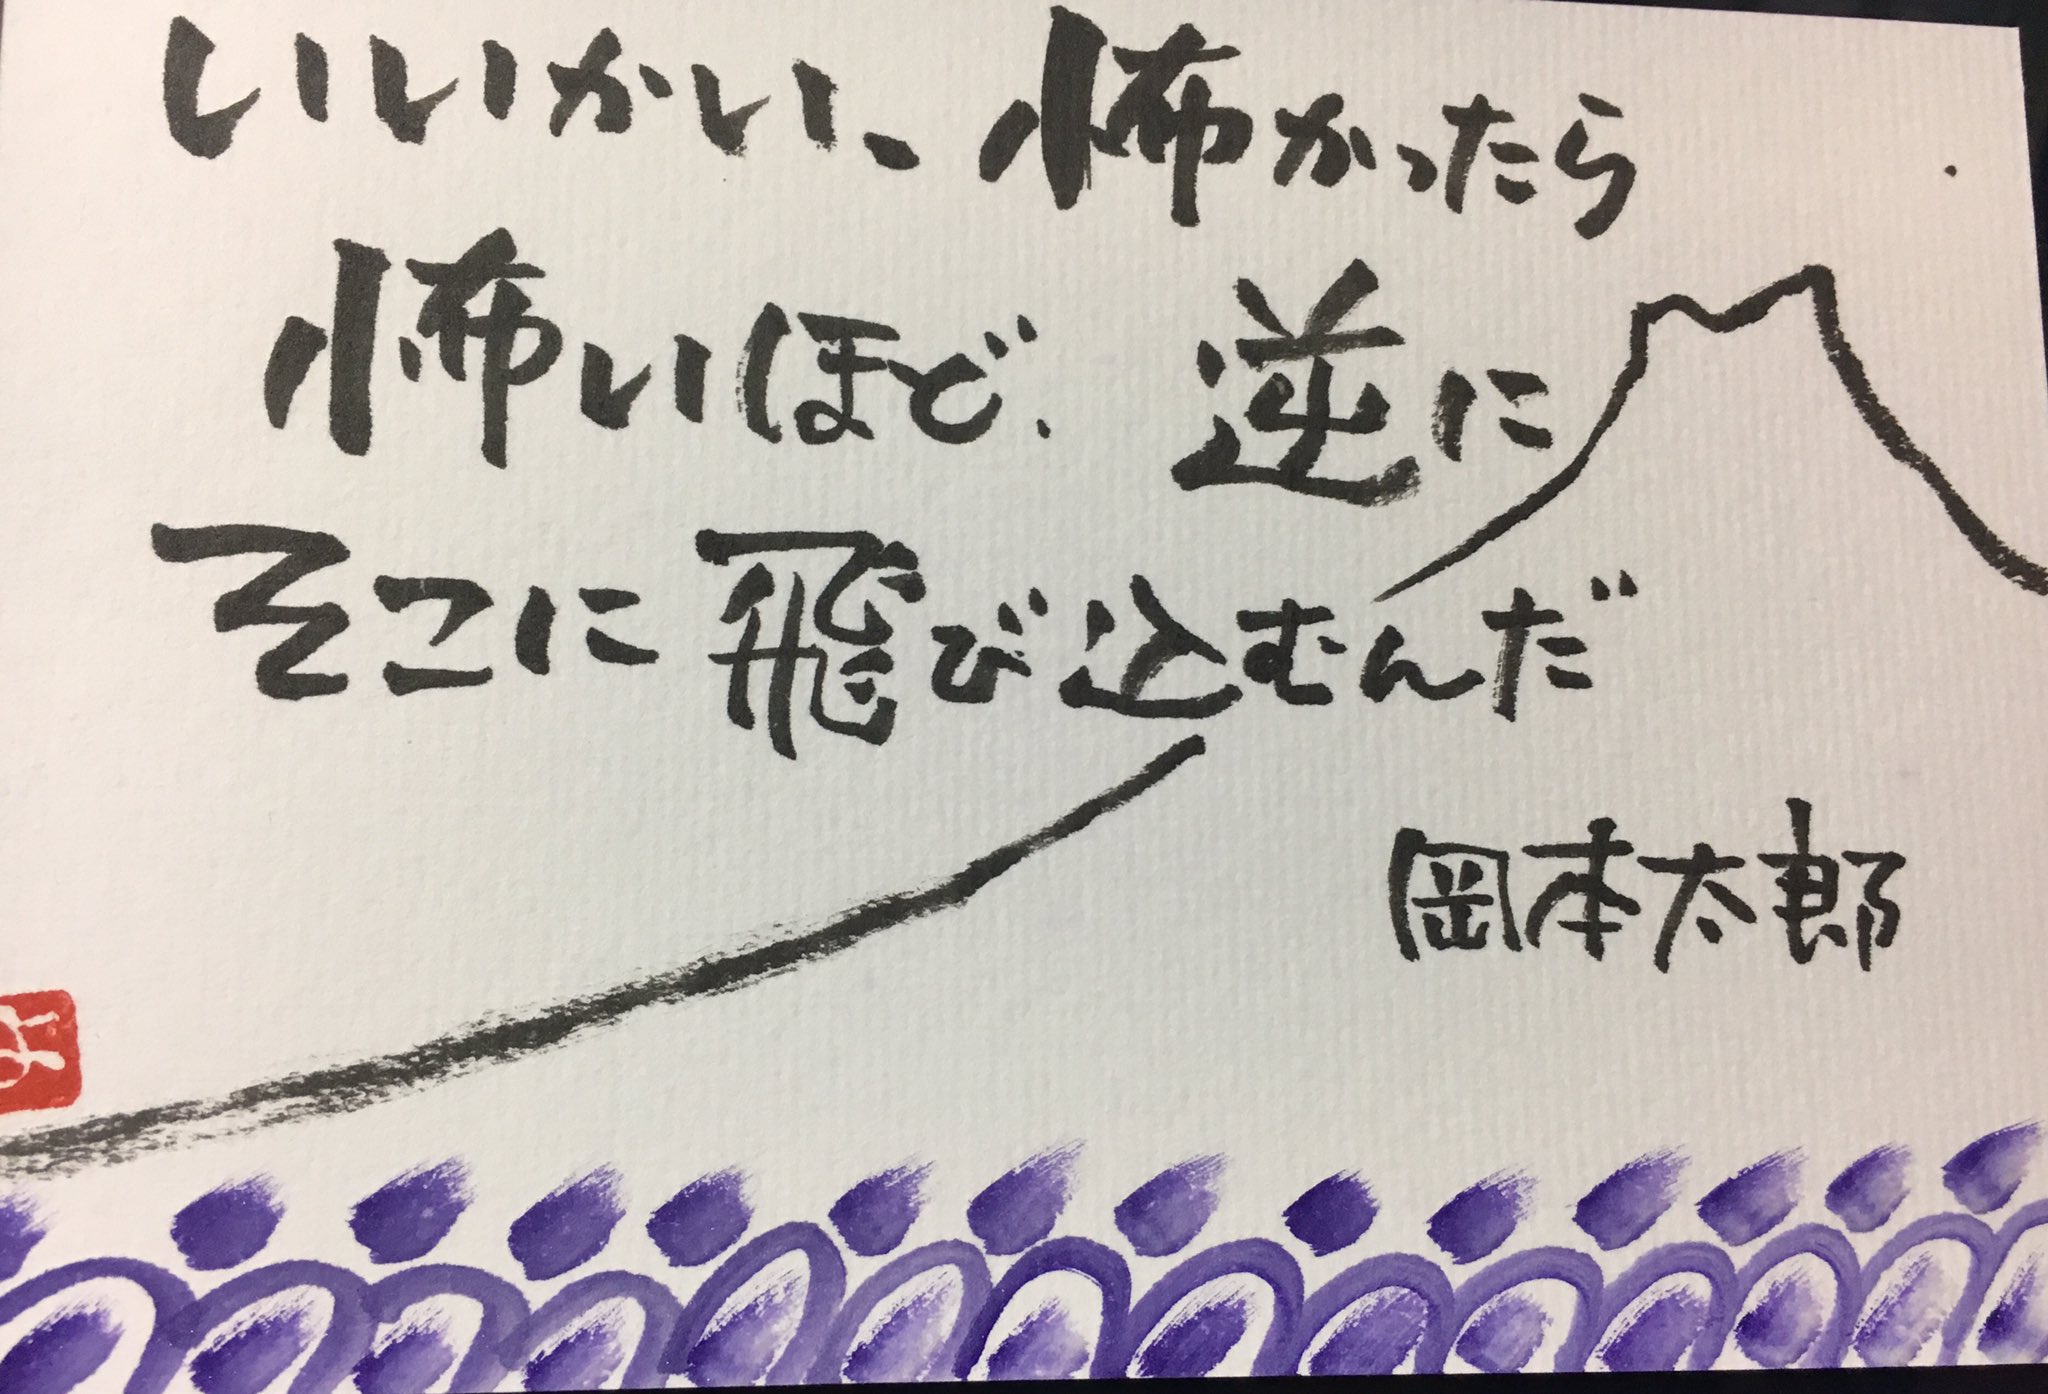 いいかい、怖かったら
怖いほど、逆に
そこに飛び込むんだ
岡本太郎